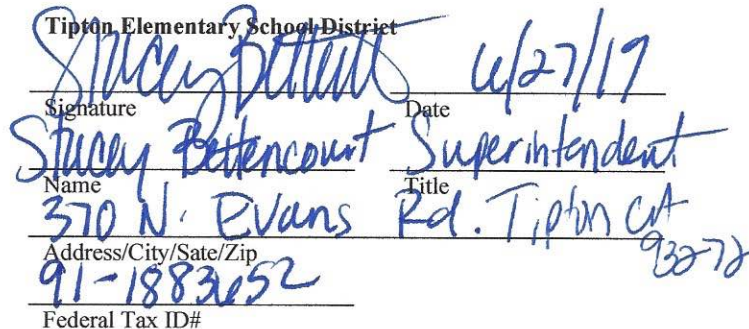 Tipton Elementary School District
Stacey Bettencourt 6/27/19
Signature Date
Stacey Bettencourt Superintendent
Name Title
370 N. Evans Rd. Tipton CA 93272
Address/City/Sate/Zip
91-1883652
Federal Tax ID#